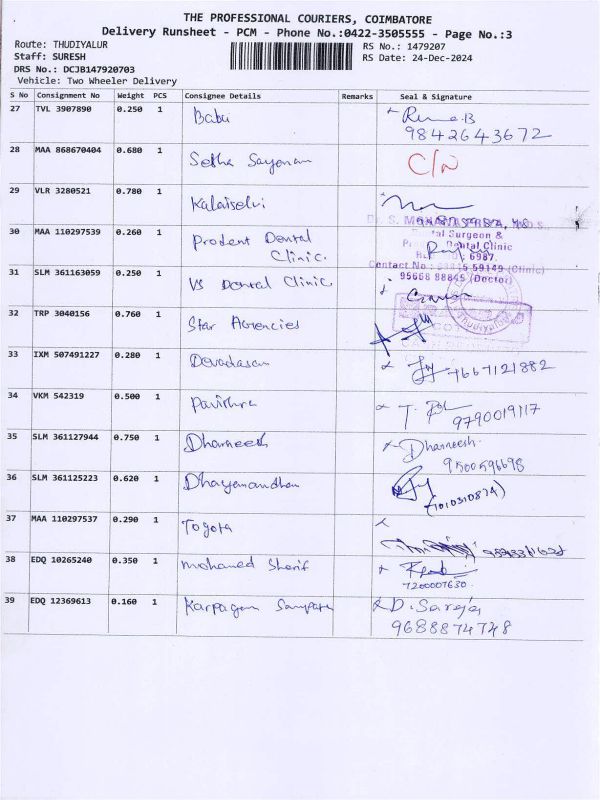 THE PROFESSIONAL COURIERS, COIMBATORE
Delivery Runsheet - PCM - Phone No.:0422-3505555 - Page No.:3
Route: THUDIYALUR RS No.: 1479207
Staff: SURESH RS Date: 24-Dec-2024
DRS No.: DCJB147920703
Vehicle: Two Wheeler Delivery
S No Consignment No Weight PCS Consignee Details Remarks Seal & Signature
27 TVL 3907890 0.250 1 Babu
9842643672
28 MAA 868670404 0.680 1 C/N
29 VLR 3280521 0.780 1 Kalaiselvi
30 MAA 110297539 0.260 1 Prodent Dental
Clinic.
Surgeon &
Dental Clinic
6987.
Contact No : 59149 (Clinic)
95668 88845 (Doctor)
31 SLM 361163059 0.250 1 VS Dental Clinic
32 TRP 3040156 0.760 1 Star Agencies
33 IXM 507491227 0.280 1 Devadasan 7667121882
34 VKM 542319 0.500 1 Pavithra
9790019117
35 SLM 361127944 0.750 1 Dharneesh Dharneesh.
9500596698
36 SLM 361125223 0.620 1
37 MAA 110297537 0.290 1 Toyota
38 EDQ 10265240 0.350 1 Mohamed Sherif
7200007630
39 EDQ 12369613 0.160 1 Karpagam Sampath D. Saroja
9688874748